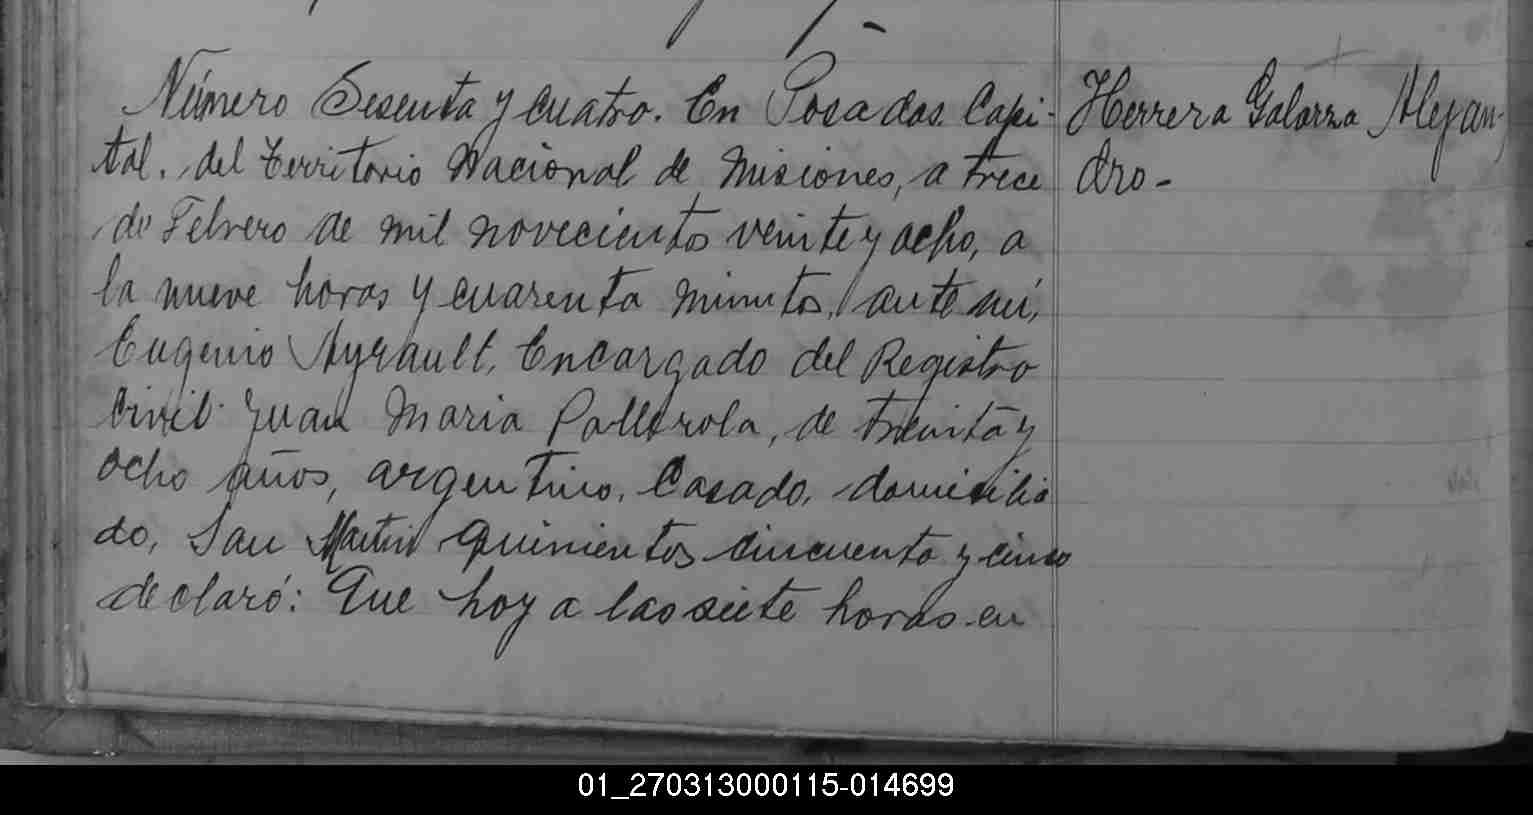 Número Sesenta y cuatro. En Posadas. Capi-
tal. del Territorio Nacional de Misiones, a trece
de Febrero de mil novecientos veinte y ocho, a
la nueve horas y cuarenta minutos, ante mí,
Eugenio Ayrault, Encargado del Registro
Civil. Juan Maria Pallerola, de treinta y
ocho años, argentino. Casado. domicilia
do, San Martin quinientos cincuenta y cinco
declaró: Que hoy a las siete horas en
Herrera Galarza Alejan-
dro-
01_270313000115-014699